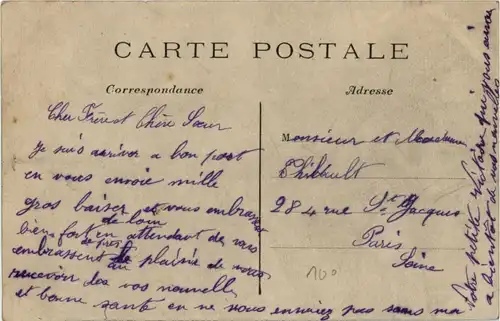 CARTE POSTALE
Correspondance
Adresse
Cher Frère et Chère Sœur
je suis arriver a bon port
en vous envoie mille
gros baiser et vous embrasse
de loin
bien fort en attendant de vous
de près
embrassent au plaisir de vous
recevoir des vos nouvelle
et bonne santé en ne vous ennuiez pas sans ma
Monsieur et Madame
Thibault
284 rue St Jacques
Paris
Seine
100
votre petite qui vous aime
a bientôt de nouvelles